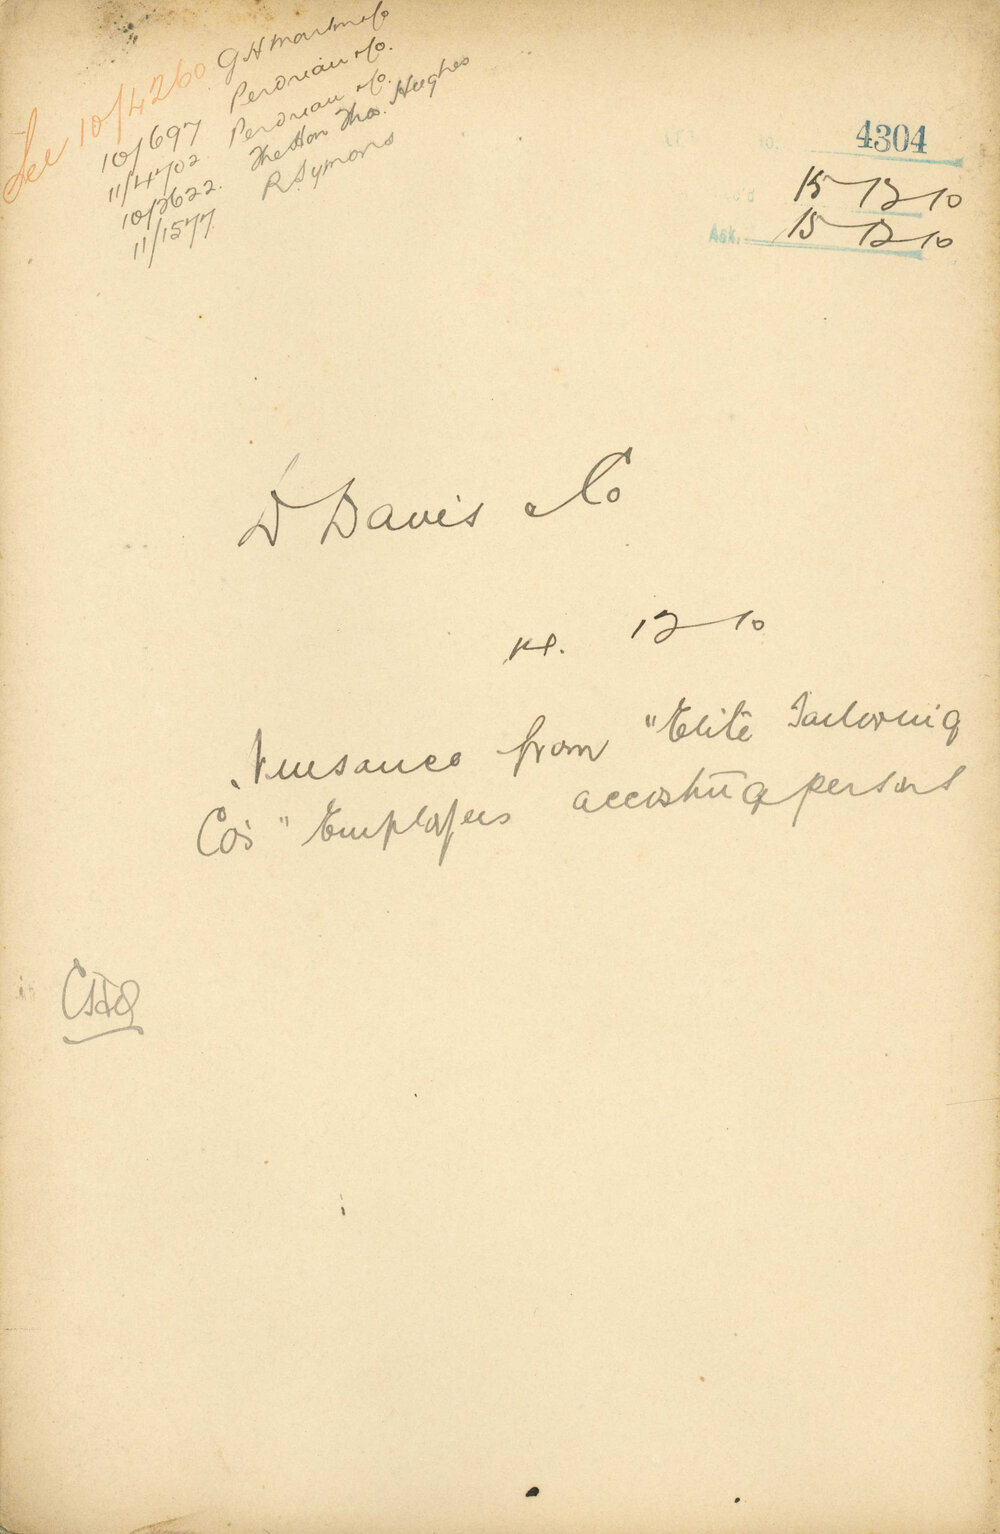 See 10/4260 G H Martin & Co
10/697 Perdriau & Co.
11/4702 Perdriau & Co.
10/3622. The Hon Thos. Hughes
11/1577 R Symons
4304
15-12-10
Ack. 15-12-10
D Davis & Co
14. 12-10
Nuisance from "Elite Tailoring
Co's" Employees accosting persons